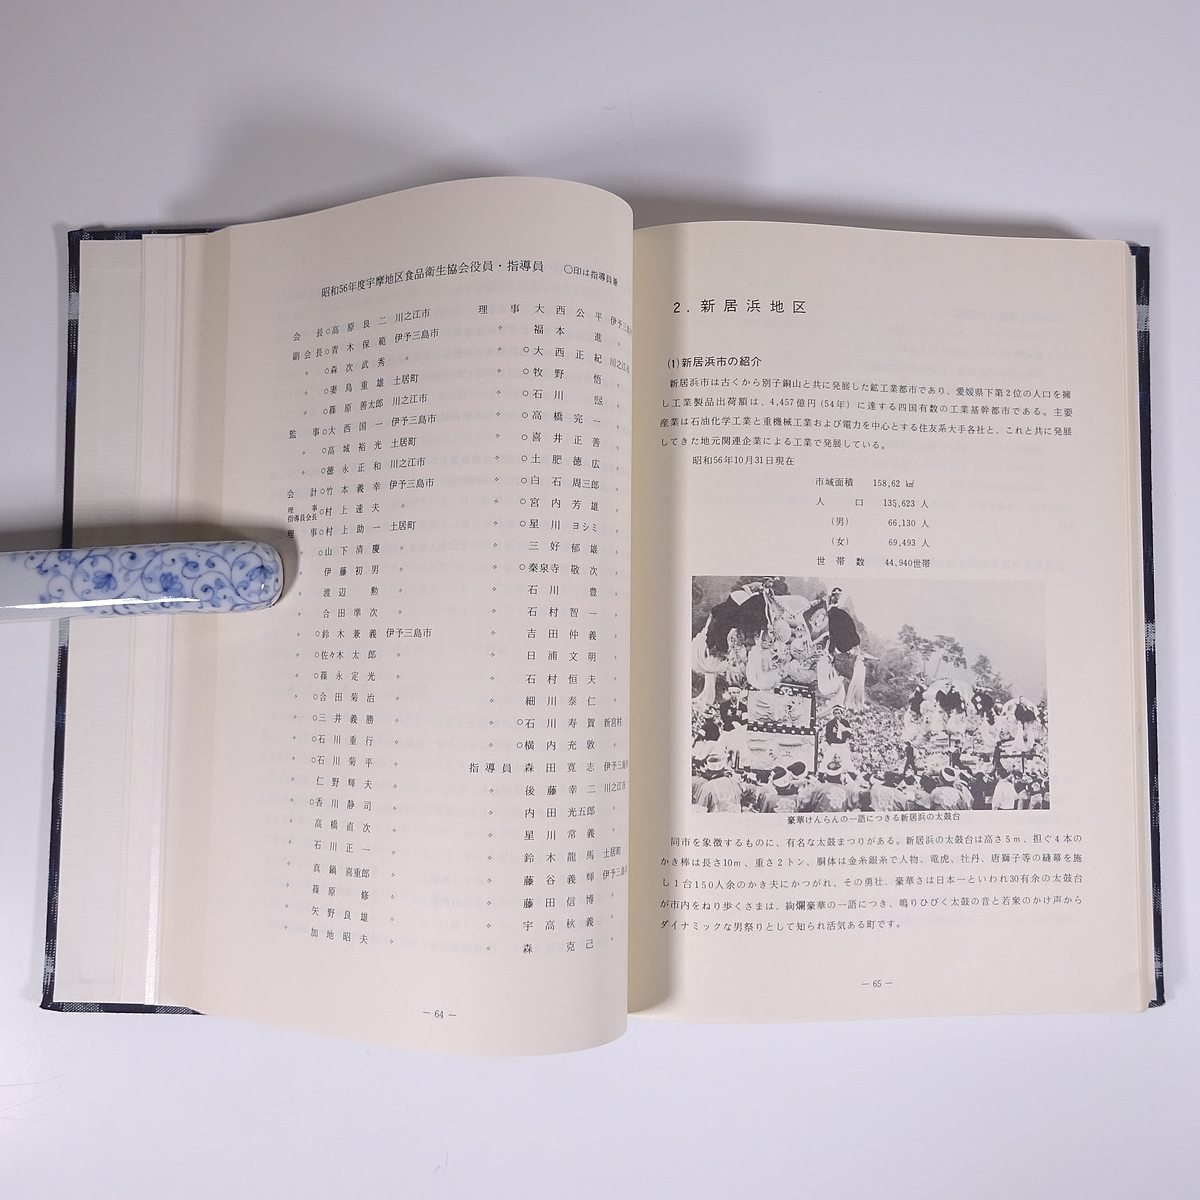 昭和56年度宇摩地区食品衛生協会役員・指導員　○印は指導員兼
会　長○高原良二　川之江市
副会長○青木保範　伊予三島市
〃　○森次武秀　〃
〃　○妻鳥重雄　土居町
〃　○篠原善太郎　川之江市
監　事○大西国一　伊予三島市
〃　○高城裕光　土居町
〃　○徳永正和　川之江市
会　計○竹本義幸　伊予三島市
理事指導員会長○村上速夫　〃
理　事○村上助一　土居町
〃　○山下清慶　〃
〃　伊藤初男　〃
〃　渡辺　勲　〃
〃　合田準次　〃
〃　○鈴木兼義　伊予三島市
〃　○佐々木太郎　〃
〃　○篠永定光　〃
〃　○合田菊治　〃
〃　○三井義勝　〃
〃　○石川重行　〃
〃　○石川菊平　〃
〃　仁野輝夫　〃
〃　○香川静司　〃
〃　高橋直次　〃
〃　石川正一　〃
〃　真鍋喜重郎　〃
〃　篠原　修　〃
〃　矢野良雄　〃
〃　加地昭夫　〃
理　事　大西公平　伊予三島
〃　福本　進　〃
〃　○大西正紀　川之江市
〃　○牧野　悟　〃
〃　○石川　〃
〃　○高橋完一　〃
〃　○喜井正善　〃
〃　○土肥徳広　〃
〃　○白石周三郎　〃
〃　○宮内芳雄　〃
〃　○星川ヨシミ　〃
〃　三好郁雄　〃
〃　○秦泉寺敬次　〃
〃　石川　豊　〃
〃　石村智一　〃
〃　吉田仲義　〃
〃　日浦文明　〃
〃　石村恒夫　〃
〃　細川泰仁　〃
〃　○石川寿賀　新宮村
〃　○横内充敦　〃
指導員　森田寛志　伊予三島
〃　後藤幸二　川之江市
〃　内田光五郎　〃
〃　星川常義　〃
〃　鈴木龍馬　土居町
〃　藤谷義輝　伊予三島
〃　藤田信博　〃
〃　宇高秋義　〃
〃　森　克己　〃
― 64 ―
2．新居浜地区
(1)新居浜市の紹介
新居浜市は古くから別子銅山と共に発展した鉱工業都市であり、愛媛県下第2位の人口を擁
し工業製品出荷額は、4,457億円(54年)に達する四国有数の工業基幹都市である。主要
産業は石油化学工業と重機械工業および電力を中心とする住友系大手各社と、これと共に発展
してきた地元関連企業による工業で発展している。
昭和56年10月31日現在
市域面積　158,62 ㎢
人　口　135,623 人
(男)　66,130 人
(女)　69,493 人
世帯数　44,940世帯
豪華けんらんの一語につきる新居浜の太鼓台
同市を象徴するものに、有名な太鼓まつりがある。新居浜の太鼓台は高さ5m、担ぐ4本の
かき棒は長さ10m、重さ2トン、胴体は金糸銀糸で人物、竜虎、牡丹、唐獅子等の縫幕を施
し1台150人余のかき夫にかつがれ、その勇壮、豪華さは日本一といわれ30有余の太鼓台
が市内をねり歩くさまは、絢爛豪華の一語につき、鳴りひびく太鼓の音と若衆のかけ声から
ダイナミックな男祭りとして知られ活気ある町です。
― 65 ―